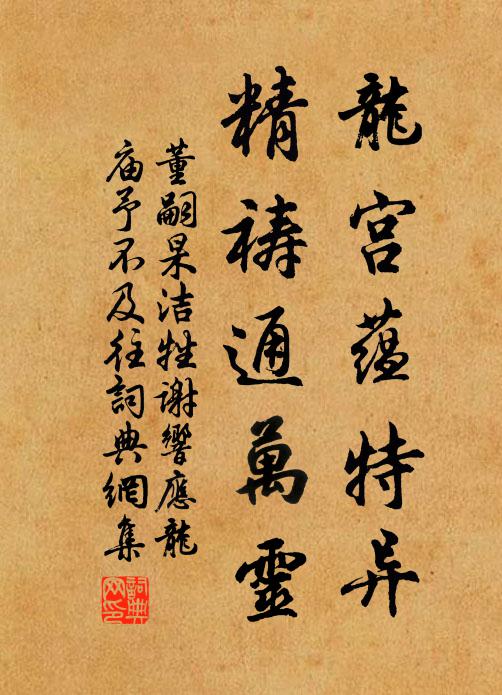 龍宮蘊特异
精祷通萬靈
董嗣杲洁牲谢響應龍
庙予不及往詞典網集
詞典
网印